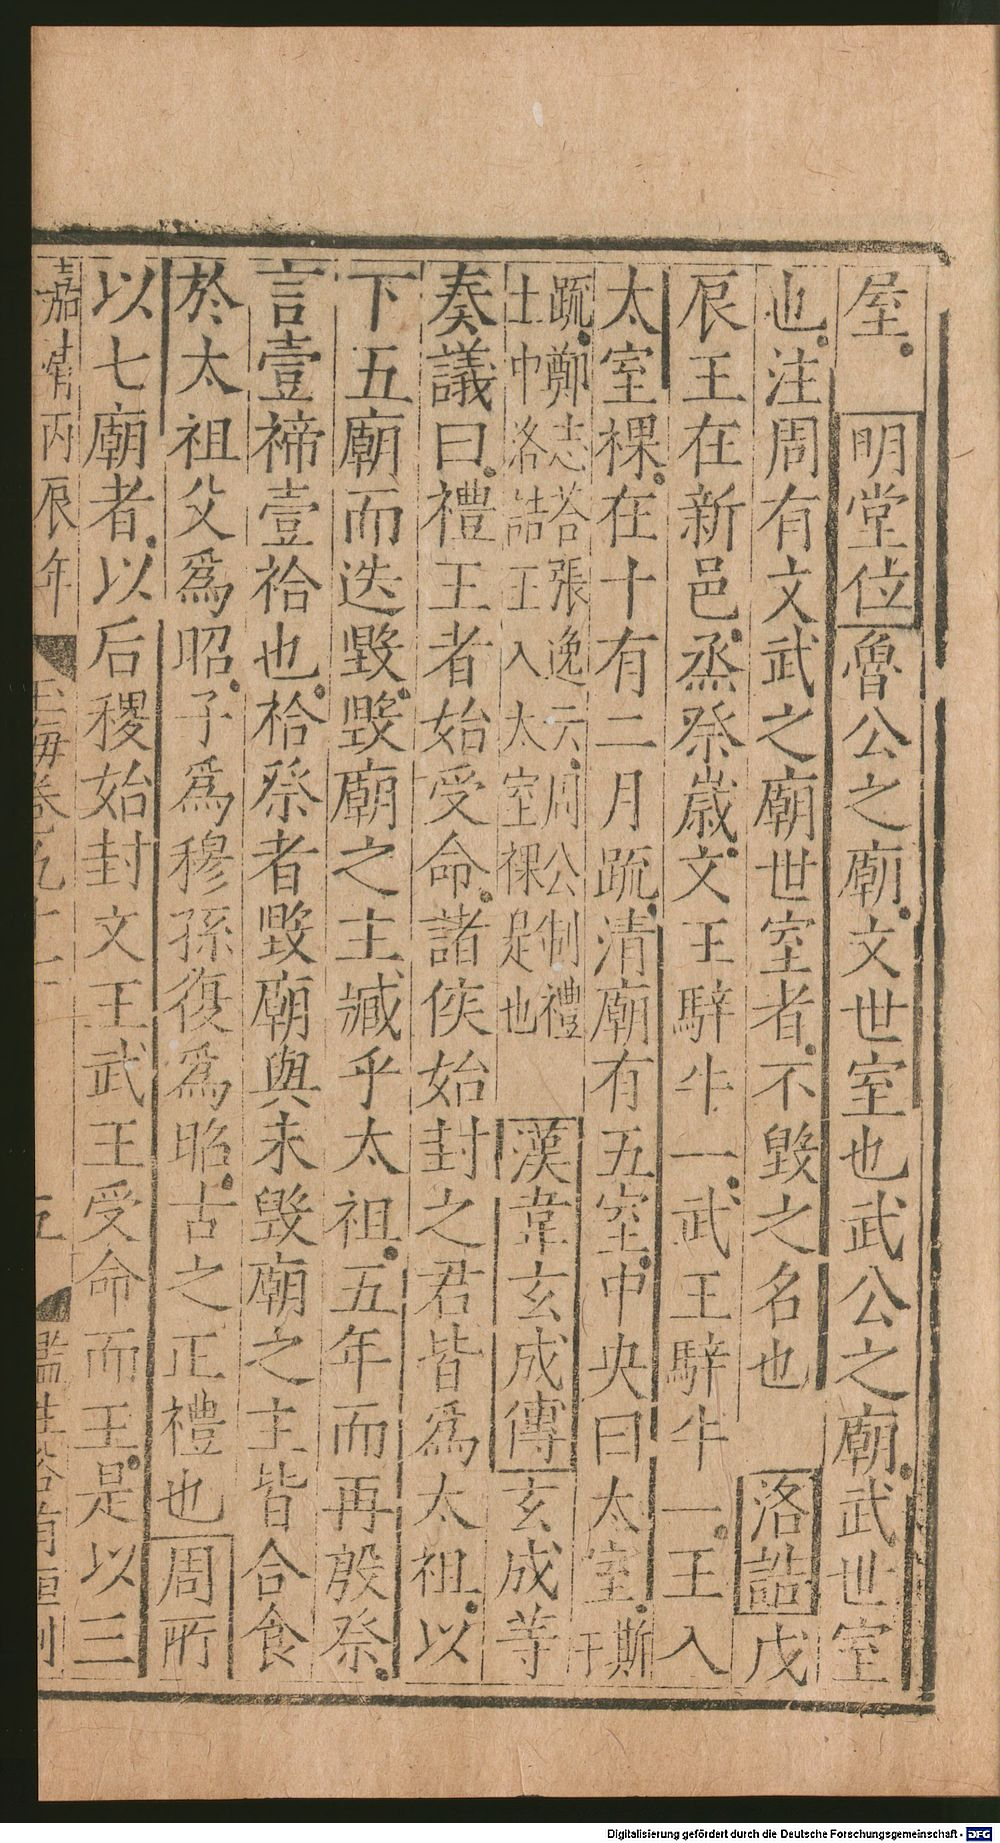 屋 明堂位魯公之廟文世室也武公之廟武世室
也注周有文武之廟世室者不毀之名也 洛誥戊
辰王在新邑烝祭歲文王騂牛一武王騂牛一王入
太室祼在十有二月䟽清廟有五室中央曰太室斯干
䟽鄭志荅張逸云周公制禮
土中洛誥王入太室祼是也 漢韋玄成傳玄成等
奏議曰禮王者始受命諸侯始封之君皆爲太祖以
下五廟而迭毀毀廟之主臧乎太祖五年而再殷祭
言壹禘壹祫也祫祭者毀廟與未毀廟之主皆合食
於太祖父爲昭子爲穆孫復爲昭古之正禮也周所
以七廟者以后稷始封文王武王受命而王是以三
嘉靖丙辰年 玉海卷九十一 九 監生
Digitalisierung gefördert durch die Deutsche Forschungsgemeinschaft - DFG